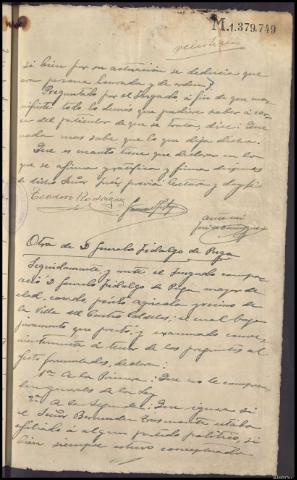 M.1.379.749
si bien por su actuación se deducía que
era persona honrada y de orden.
Preguntado por el Juzgado, á fin de que ma-
nifieste todo lo demás que pudiere saber á cer-
ca del particular de que se trata, dice: Que
nada mas sabe que lo que deja dicho.
Que es cuanto tiene que declarar en lo
que se afirma y ratifica y firma después
de dicho Señor Juez, previa lectura, doy fé.
Rodriguez
Otra de D. Gonzalo Fidalgo de Puga
Seguidamente y ante el Juzgado compa-
reció D. Gonzalo Fidalgo de Puga mayor de
edad, casado, perito agrícola y vecino de
la Villa de Castro Caldelas; el cual bajo
juramento que prestó, y examinado conve-
nientemente á tenor de las preguntas al
efecto formuladas, declara:
1ª. A la Primera: Que no le compren-
den generales de la Ley.
2ª. A la Segunda: Que ignora si
el Señor Bermudez estaba
afiliado á algun partido político, si
bien siempre estuvo